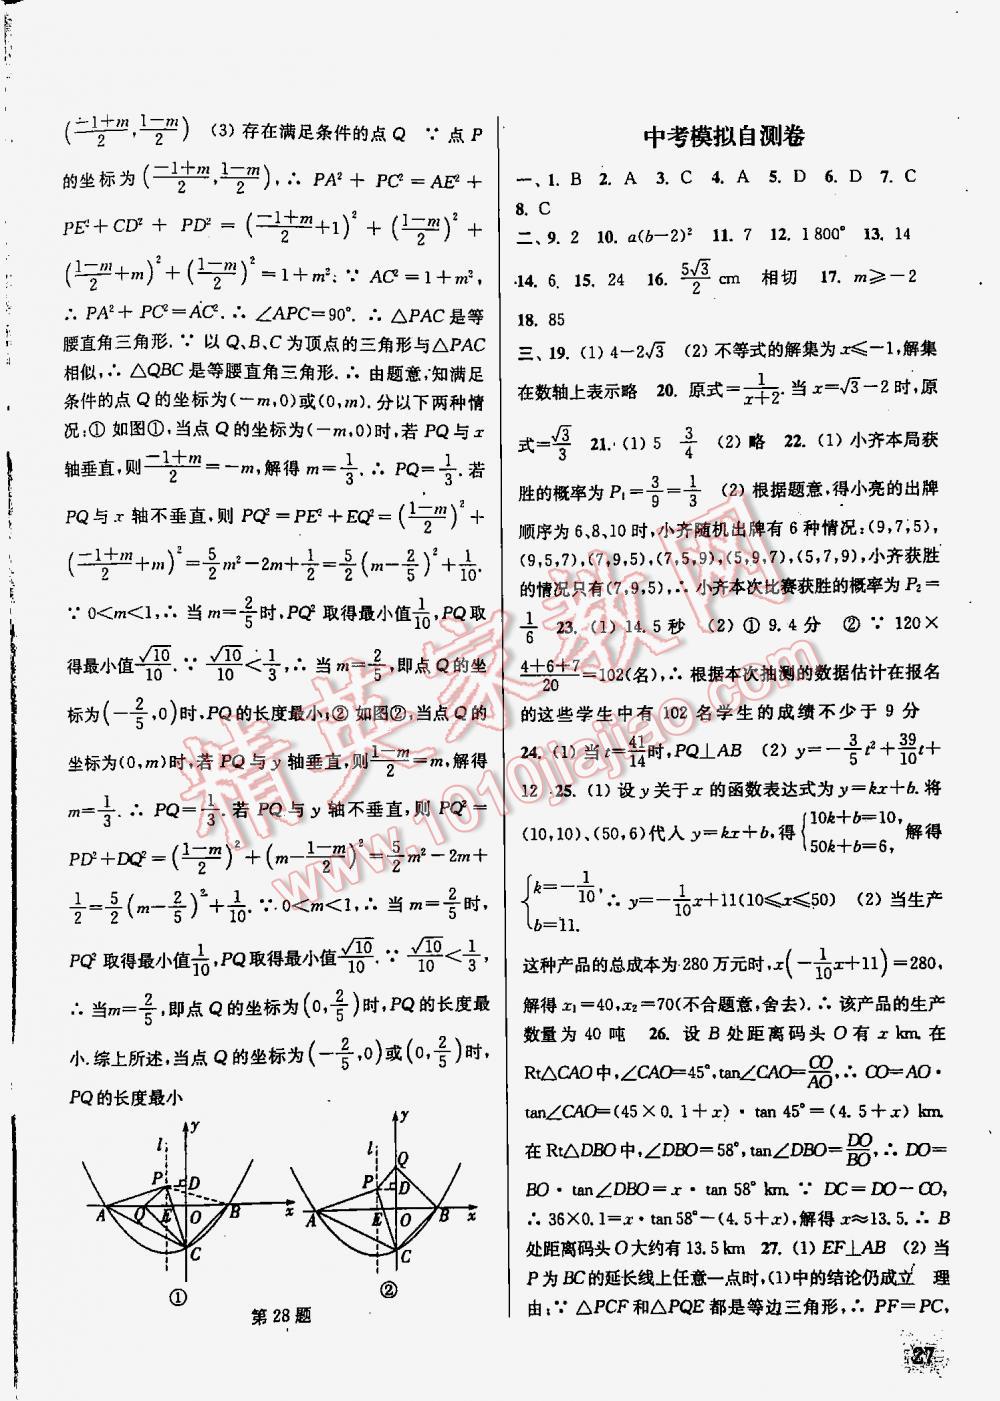 (−1+m/2, 1−m/2) (3) 存在满足条件的点 Q ∵ 点 P
的坐标为 (−1+m/2, 1−m/2), ∴ PA² + PC² = AE² +
PE² + CD² + PD² = (−1+m/2 + 1)² + (1−m/2)² +
(−1−m/2 + m)² + (1−m/2)² = 1 + m². ∵ AC² = 1 + m²,
∴ PA² + PC² = AC². ∴ ∠APC = 90°. ∴ △PAC 是等
腰直角三角形. ∵ 以 Q、B、C 为顶点的三角形与△PAC
相似, ∴ △QBC 是等腰直角三角形. ∴ 由题意,知满足
条件的点 Q 的坐标为(−m,0)或(0,m).分以下两种情
况:① 如图①,当点 Q 的坐标为(−m,0)时,若 PQ 与 x
轴垂直,则 −1+m/2 = −m,解得 m = 1/3. ∴ PQ = 1/3. 若
PQ 与 x 轴不垂直,则 PQ² = PE² + EQ² = (1−m/2)² +
(−1+m/2 + m)² = 5/2 m² − 2m + 1/2 = 5/2 (m − 2/5)² + 1/10.
∵ 0<m<1, ∴ 当 m = 2/5 时, PQ² 取得最小值 1/10, PQ 取
得最小值 √10/10. ∵ √10/10 < 1/3, ∴ 当 m = 2/5,即点 Q 的坐
标为(−2/5, 0)时, PQ 的长度最小;② 如图②,当点 Q 的
坐标为(0,m)时,若 PQ 与 y 轴垂直,则 1−m/2 = m,解得
m = 1/3. ∴ PQ = 1/3. 若 PQ 与 y 轴不垂直,则 PQ² =
PD² + DQ² = (1−m/2)² + (m − 1−m/2)² = 5/2 m² − 2m +
1/2 = 5/2 (m − 2/5)² + 1/10. ∵ 0<m<1, ∴ 当 m = 2/5 时,
PQ² 取得最小值 1/10, PQ 取得最小值 √10/10. ∵ √10/10 < 1/3,
∴ 当m = 2/5,即点 Q 的坐标为(0, 2/5)时, PQ 的长度最
小.综上所述,当点 Q 的坐标为(−2/5, 0)或(0, 2/5)时,
PQ 的长度最小
y
l
P
D
A
Q
E
O
B
x
C
①
y
l
Q
P
D
A
E
O
B
x
C
②
第 28 题
中考模拟自测卷
一、1. B 2. A 3. C 4. A 5. D 6. D 7. C
8. C
二、9. 2 10. a(b−2)² 11. 7 12. 1 800° 13. 14
14. 6 15. 24 16. 5√3/2 cm 相切 17. m⩾−2
18. 85
三、19. (1) 4−2√3 (2) 不等式的解集为 x⩽−1,解集
在数轴上表示略 20. 原式 = 1/x+2. 当 x=√3−2 时,原
式 = √3/3 21. (1) 5 3/4 (2) 略 22. (1) 小齐本局获
胜的概率为 P₁ = 3/9 = 1/3 (2) 根据题意,得小亮的出牌
顺序为 6,8,10 时,小齐随机出牌有 6 种情况:(9,7,5),
(9,5,7),(7,9,5),(7,5,9),(5,9,7),(5,7,9),小齐获胜
的情况只有(7,9,5),∴ 小齐本次比赛获胜的概率为 P₂ =
1/6 23. (1) 14.5 秒 (2) ① 9.4 分 ② ∵ 120×
4+6+7/20 = 102(名), ∴ 根据本次抽测的数据估计在报名
的这些学生中有 102 名学生的成绩不少于 9 分
24. (1) 当 t = 41/14 时, PQ⊥AB (2) y = −3/5 t² + 39/10 t +
12 25. (1) 设 y 关于 x 的函数表达式为 y=kx+b. 将
(10,10)、(50,6)代入 y=kx+b,得 {10k+b=10, 50k+b=6, 解得
{k=−1/10, b=11. ∴ y = −1/10 x + 11(10⩽x⩽50) (2) 当生产
这种产品的总成本为 280 万元时, x(−1/10 x + 11) = 280,
解得 x₁=40, x₂=70(不合题意,舍去). ∴ 该产品的生产
数量为 40 吨 26. 设 B 处距离码头 O 有 x km. 在
Rt△CAO 中,∠CAO=45°, tan∠CAO = CO/AO, ∴ CO=AO·
tan∠CAO=(45×0.1+x)·tan 45°=(4.5+x) km.
在 Rt△DBO 中,∠DBO=58°, tan∠DBO = DO/BO, ∴ DO=
BO·tan∠DBO=x·tan 58° km. ∵ DC=DO−CO,
∴ 36×0.1=x·tan 58°−(4.5+x),解得 x≈13.5. ∴ B
处距离码头 O 大约有 13.5 km 27. (1) EF⊥AB (2) 当
P 为 BC 的延长线上任意一点时,(1)中的结论仍成立 理
由:∵ △PCF 和△PQE 都是等边三角形, ∴ PF=PC,
27
精英家教网
www.1010jiajiao.com